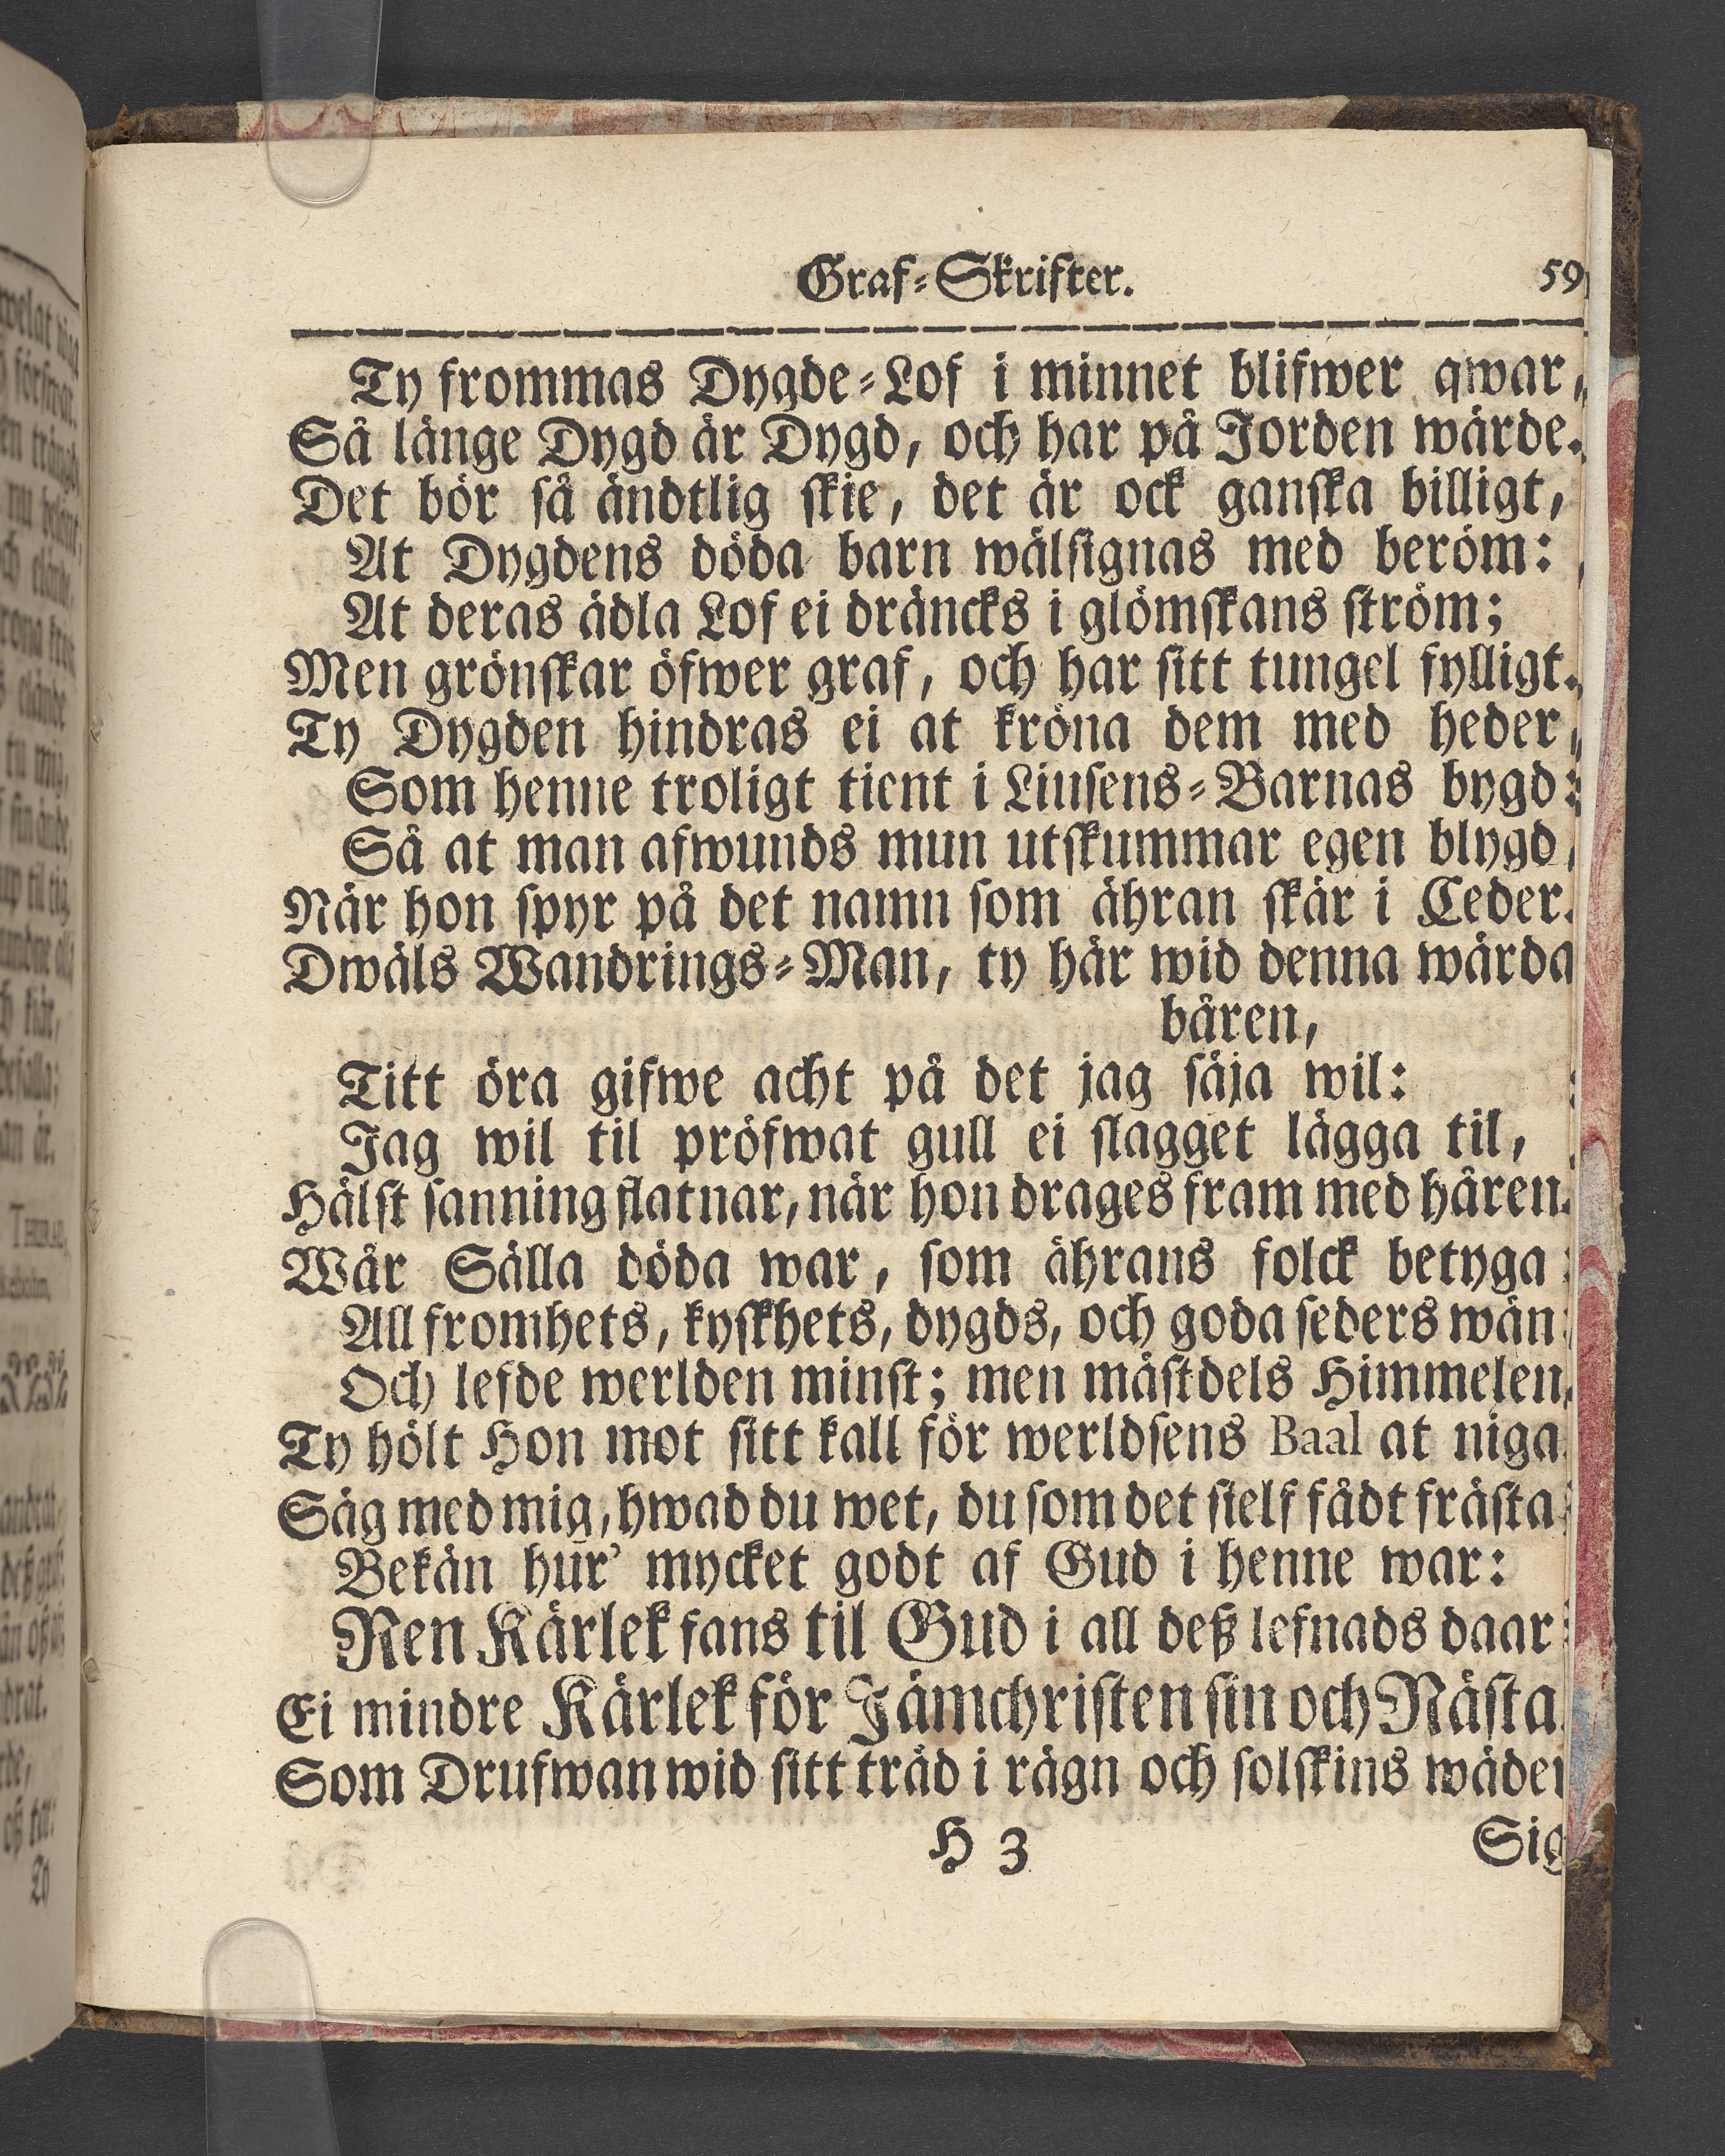 Graf-Skrifter. 59
Ty frommas Dygde-Lof i minnet blifwer qwar,
Så länge Dygd är Dygd, och har på Jorden wärde.
Det bör så ändtlig skie, det är ock ganska billigt,
At Dygdens döda barn wälsignas med beröm:
At deras ädla Lof ei dräncks i glömskans ström;
Men grönskar öfwer graf, och har sitt tungel fylligt.
Ty Dygden hindras ei at kröna dem med heder,
Som henne troligt tient i Liusens-Barnas bygd:
Så at man afwunds mun utskummar egen blygd,
När hon spyr på det namn som ähran skär i Ceder.
Dwäls Wandrings-Man, ty här wid denna wärda
båren,
Titt öra gifwe acht på det jag säja wil:
Jag wil til pröfwat gull ei slagget lägga til,
Hälst sanning flatnar, när hon drages fram med håren.
Wår Sälla döda war, som ährans folck betyga:
All fromhets, kyskhets, dygds, och goda seders wän:
Och lefde werlden minst; men mästdels Himmelen,
Ty hölt Hon mot sitt kall för werldsens Baal at niga.
Säg med mig, hwad du wet, du som det sielf fådt frästa:
Bekän hur' mycket godt af Gud i henne war:
Ren Kärlek fans til Gud i all deß lefnads daar:
Ei mindre Kärlek för Jämchristen sin och Nästa.
Som Drufwan wid sitt träd i rägn och solskins wäder
H 3 Sig